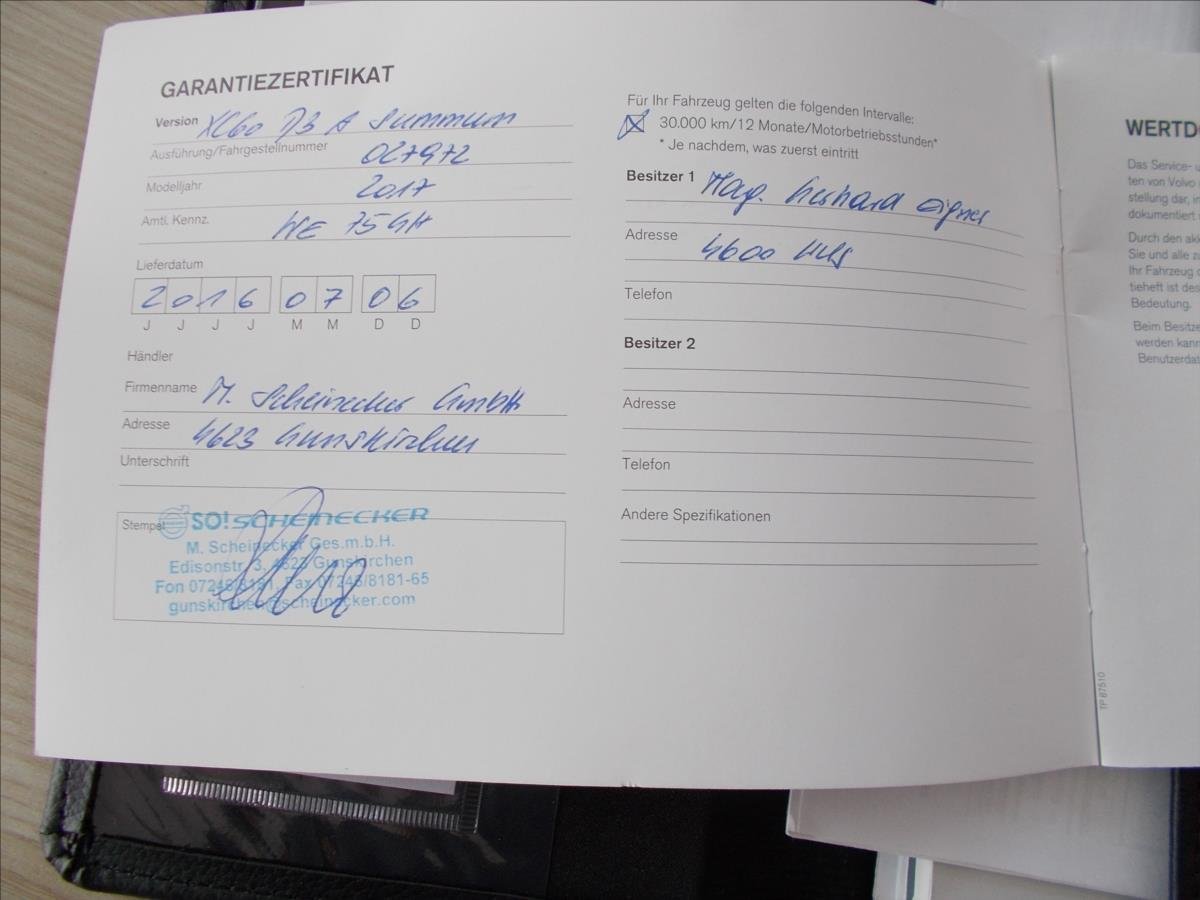 GARANTIEZERTIFIKAT
Version XC60 D3 A Summum
Ausführung/Fahrgestellnummer 027972
Modelljahr 2017
Amtl. Kennz. WE 75GH
Lieferdatum
2016 07 06
J J J J M M D D
Händler
Firmenname M. Scheinecker GmbH
Adresse 4623 Gunskirchen
Unterschrift
Stempel
SO! SCHEINECKER
M. Scheinecker Ges.m.b.H.
Edisonstr. 3, 4623 Gunskirchen
Fon 07246/8181, Fax 07246/8181-65
gunskirchen@scheinecker.com
Für Ihr Fahrzeug gelten die folgenden Intervalle:
30.000 km/12 Monate/Motorbetriebsstunden*
* Je nachdem, was zuerst eintritt
Besitzer 1 Mag. Gerhard Aigner
Adresse 4600 Wels
Telefon
Besitzer 2
Adresse
Telefon
Andere Spezifikationen
TP 87510
WERTD
Das Service- u
ten von Volvo
stellung dar, in
dokumentiert
Durch den akk
Sie und alle zu
Ihr Fahrzeug
tieheft ist des
Bedeutung.
Beim Besitze
werden kann
Benutzerdat